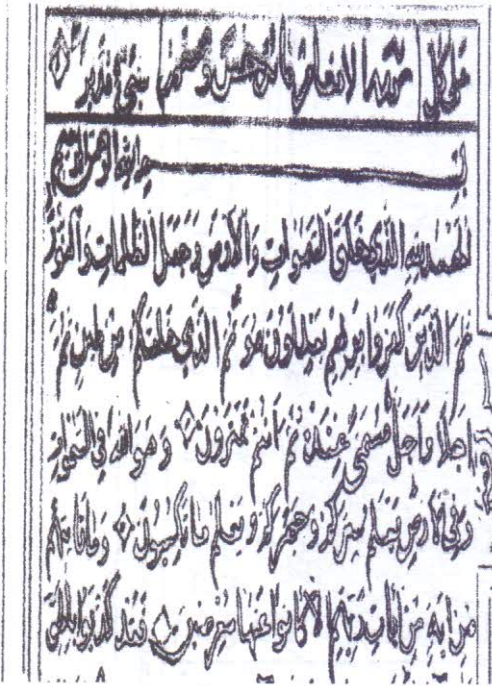 على كل سورة الانعام مائة وخمس وستون شيء قدير
بسم الله الرحمن الرحيم
الْحَمْدُ لِلّٰهِ الَّذِي خَلَقَ السَّمَوَاتِ وَالْأَرْضَ وَجَعَلَ الظُّلُمَاتِ وَالنُّورَ
ثُمَّ الَّذِينَ كَفَرُوا بِرَبِّهِمْ يَعْدِلُونَ هُوَ الَّذِي خَلَقَكُمْ مِنْ طِينٍ ثُمَّ
اَجَلًا وَاَجَلٌ مُسَمًّى عِنْدَهُ ثُمَّ اَنْتُمْ تَمْتَرُونَ وَهُوَ اللّٰهُ فِي السَّمَوَاتِ
وَفِي الْاَرْضِ يَعْلَمُ سِرَّكُمْ وَجَهْرَكُمْ وَيَعْلَمُ مَا تَكْسِبُونَ وَمَا تَاْتِيهِمْ
مِنْ اٰيَةٍ مِنْ اٰيَاتِ رَبِّهِمْ اِلَّا كَانُوا عَنْهَا مُعْرِضِينَ فَقَدْ كَذَّبُوا بِالْحَقِّ